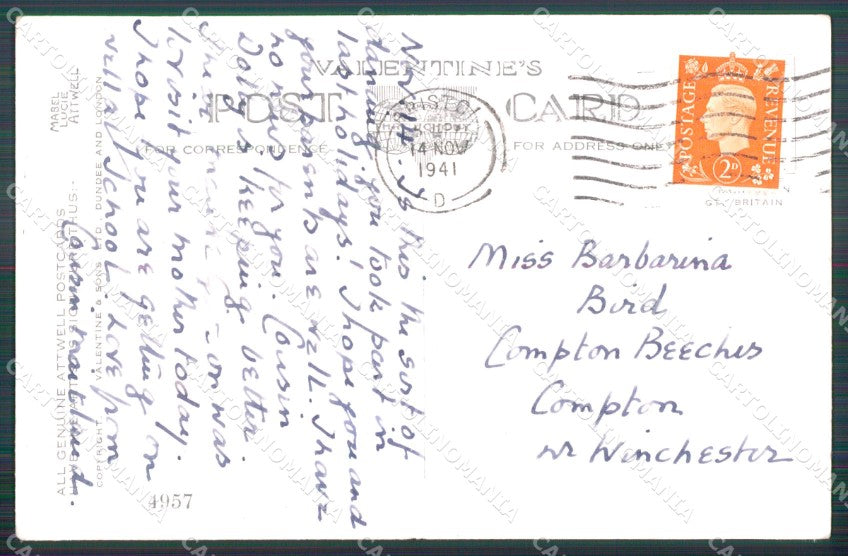 VALENTINE'S
POST CARD
FOR CORRESPONDENCE
FOR ADDRESS ONLY
MABEL
LUCIE
ATTWELL
ALL GENUINE ATTWELL POSTCARDS
COPYRIGHT VALENTINE & SONS LTD. DUNDEE AND LONDON
4957
BRISTOL
14 NOV
1941
D
POSTAGE
REVENUE
2D
GT. BRITAIN
Nov 14. Is this the sort of
dancing you took part in
last holidays? I hope you and
your parents are well. I have
no news for you. Cousin
Dolly is keeping better.
was
to visit your mother today.
I hope you are getting on
well at School. Love from
Cousin Maitland.
Miss Barbarina
Bird
Compton Beeches
Compton
Nr Winchester
CARTOLINOMANIA